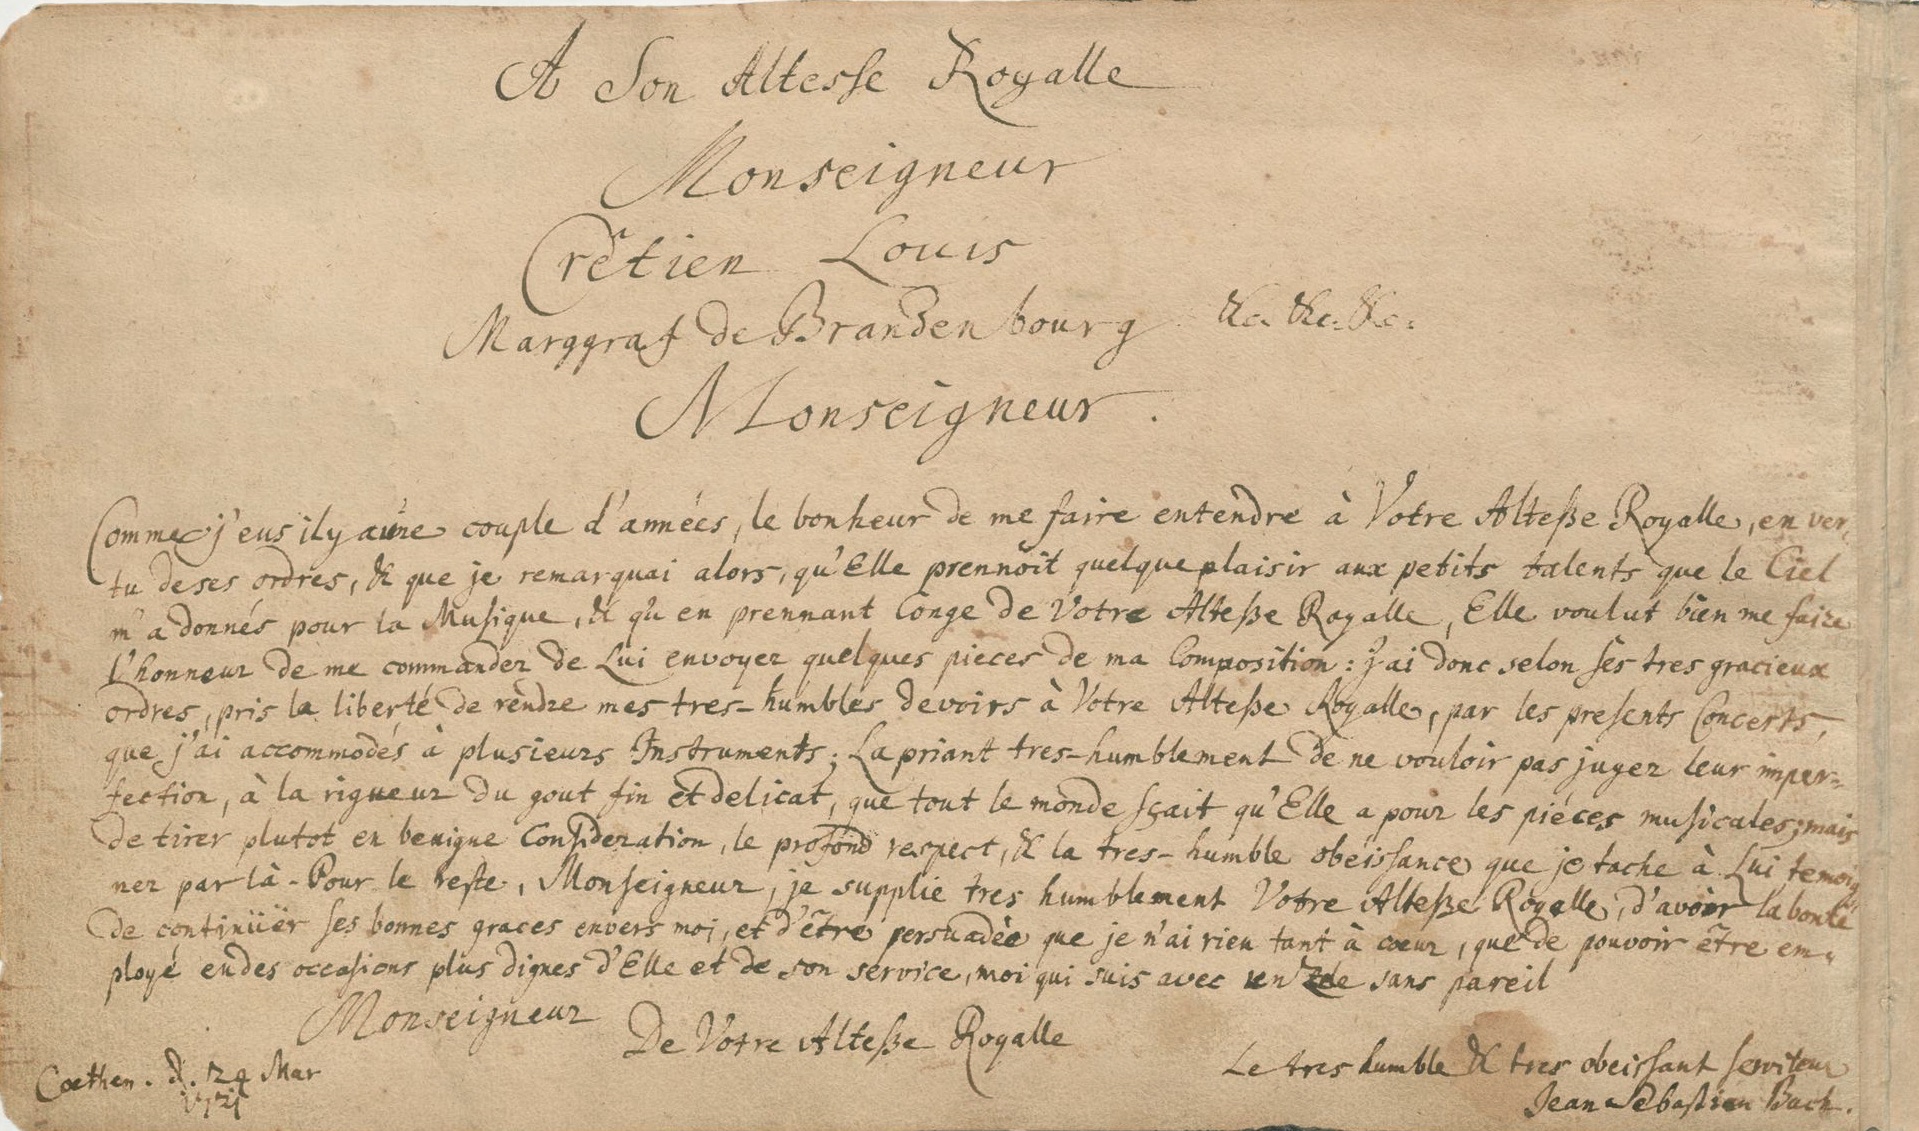 A Son Altesse Royalle
Monseigneur
Crêtien Louis
Marggraf de Brandenbourg &c. &c. &c.
Monseigneur.
Comme j'eus il y a une couple d'années, le bonheur de me faire entendre à Votre Alteße Royalle, en ver-
tu de ses ordres, & que je remarquai alors, qu'Elle prennoit quelque plaisir aux petits talents que le Ciel
m'a donnés pour la Musique, & qu'en prennant Conge de Votre Alteße Royalle, Elle voulut bien me faire
l'honneur de me commander de Lui envoyer quelques pieces de ma Composition: j'ai donc selon ses tres gracieux
ordres, pris la liberté de rendre mes tres-humbles devoirs à Votre Alteße Royalle, par les presents Concerts,
que j'ai accommodés à plusieurs Instruments; La priant tres-humblement de ne vouloir pas juger leur imper-
fection, à la rigueur du gout fin et delicat, que tout le monde sçait qu'Elle a pour les piéces musicales; mais
de tirer plutot en benigne Consideration, le profond respect, & la tres-humble obéissance que je tache à Lui temoig
ner par là. Pour le reste, Monseigneur, je supplie tres humblement Votre Alteße Royalle, d'avoir la bonté
de continüer ses bonnes graces envers moi, et d'être persuadèe que je n'ai rien tant à cœur, que de pouvoir être em-
ployé en des occasions plus dignes d'Elle et de son service, moi qui suis avec un zele sans pareil
Monseigneur
De Votre Alteße Royalle
Coethen. d. 24 Mar
1721
Le tres humble & tres obeissant serviteur
Jean Sebastien Bach.